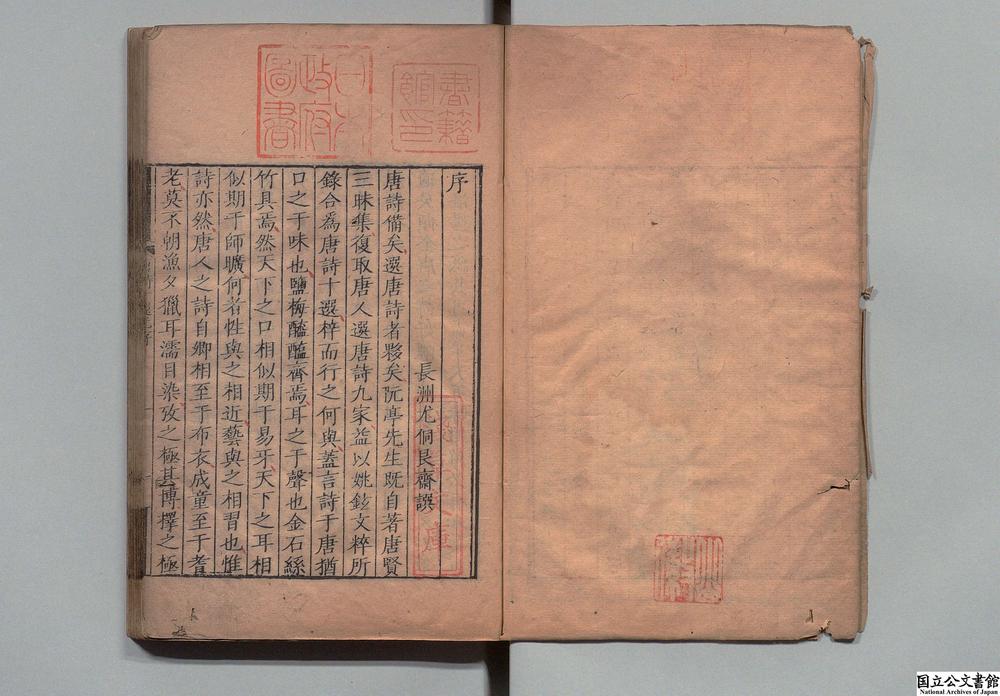 序
長洲尤侗艮齋譔
唐詩備矣選唐詩者夥矣阮亭先生既自著唐賢
三昧集復取唐人選唐詩九家益以姚鉉文粹所
錄合為唐詩十選梓而行之何與蓋言詩于唐猶
口之于味也鹽梅醯醢齊焉耳之于聲也金石絲
竹具焉然天下之口相似期于易牙天下之耳相
似期于師曠何者性與之相近藝與之相習也惟
詩亦然唐人之詩自卿相至于布衣成童至于耆
老莫不朝漁夕獵耳濡目染攷之極其博擇之極
書籍館印
日本政府圖書
国立公文書館
National Archives of Japan